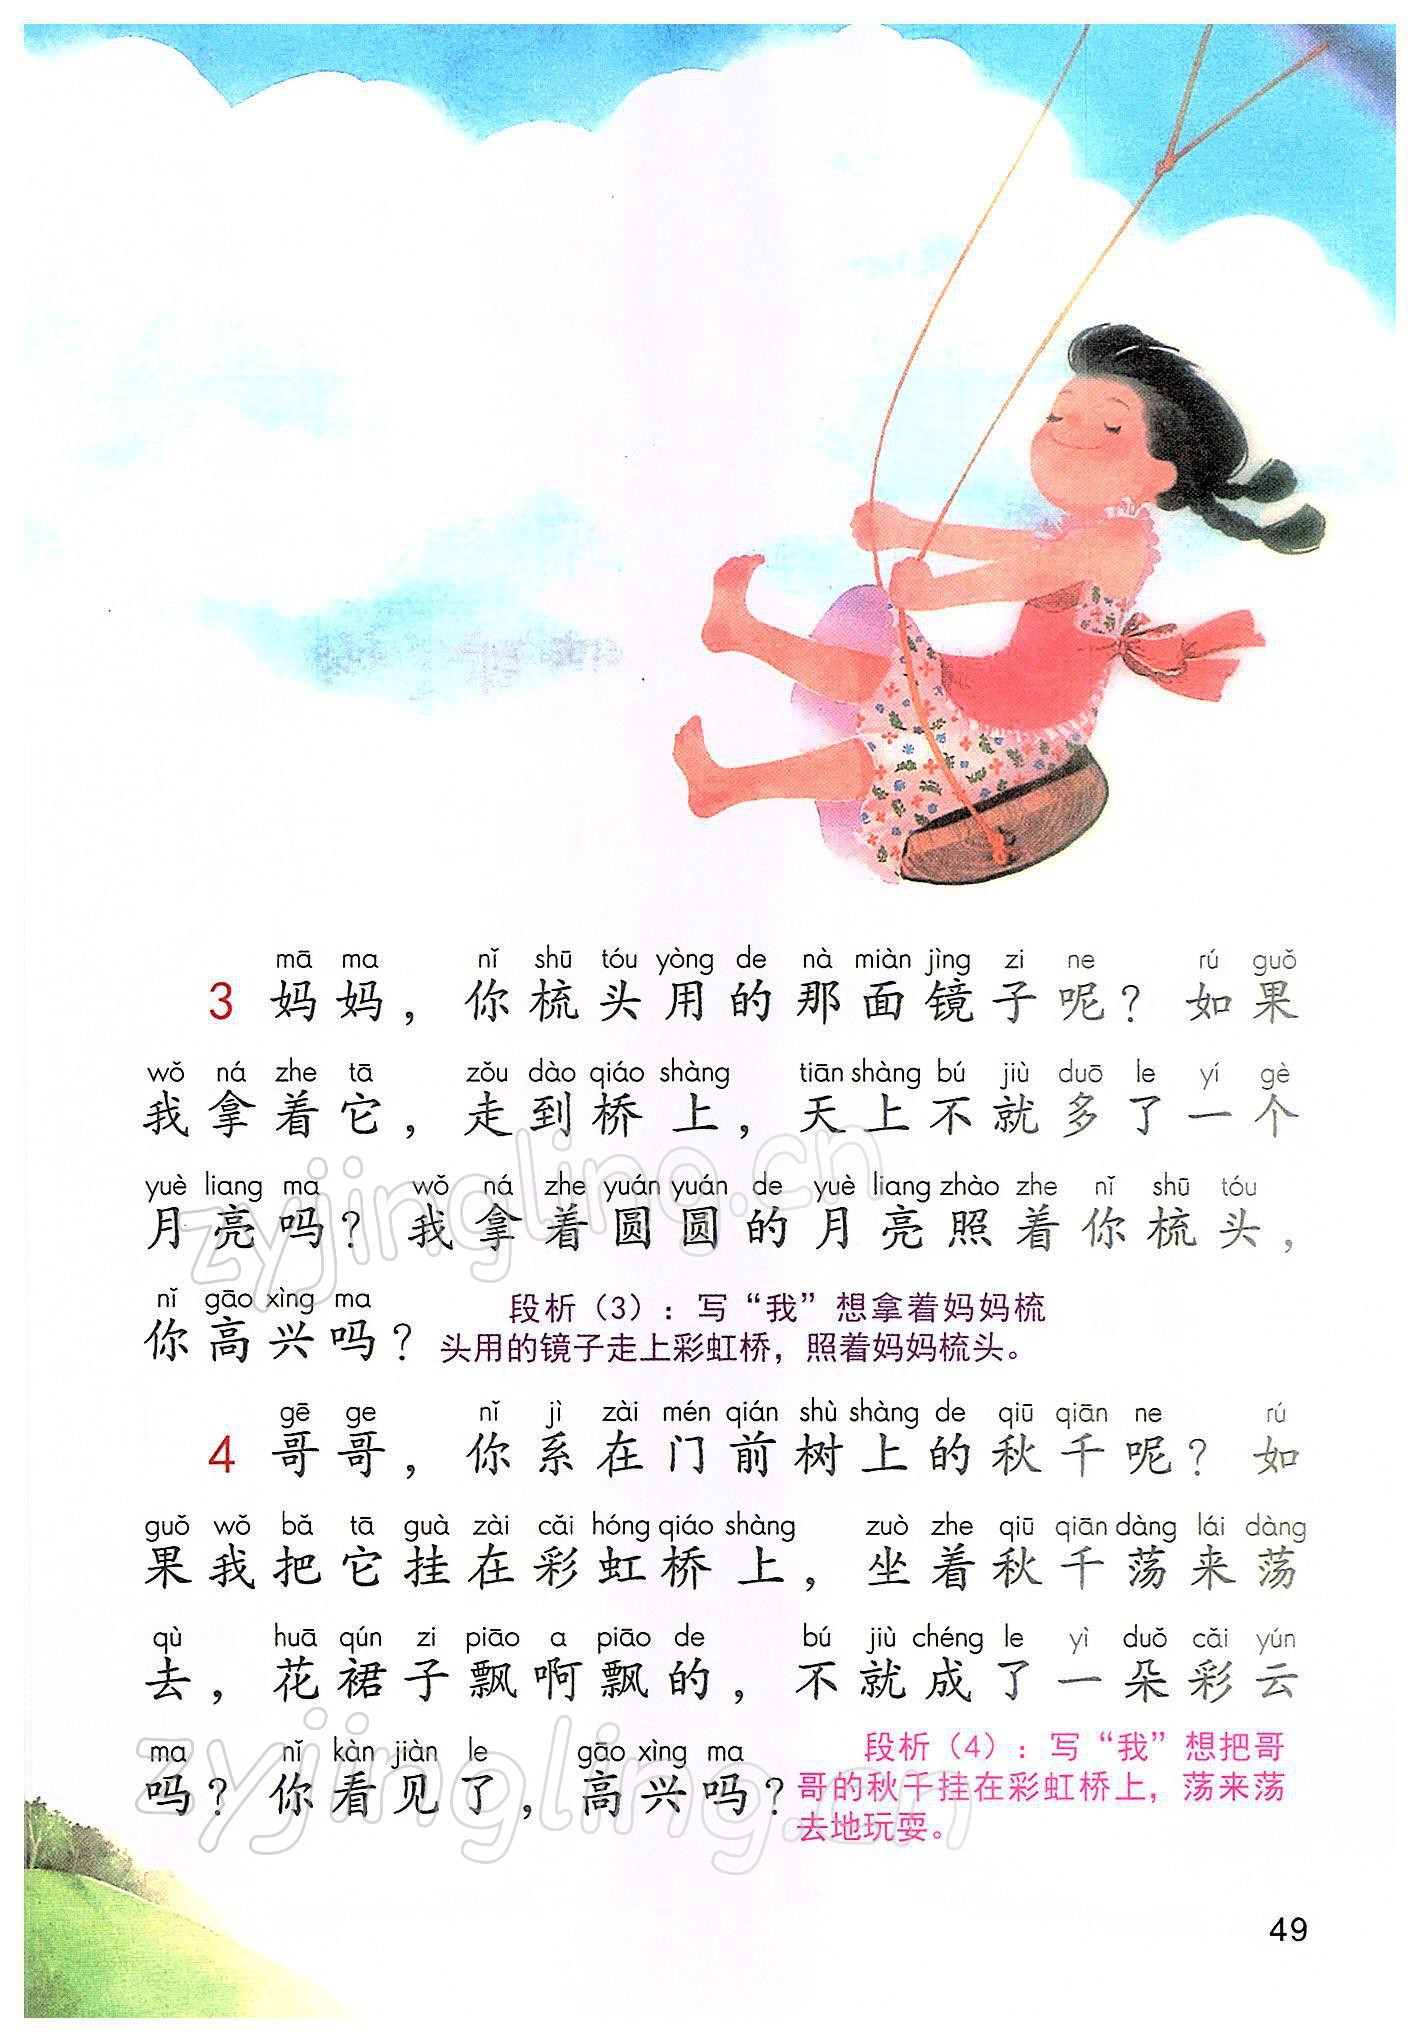 mā ma nǐ shū tóu yòng de nà miàn jìng zi ne rú guǒ
3 妈妈，你梳头用的那面镜子呢？如果
wǒ ná zhe tā zǒu dào qiáo shàng tiān shàng bú jiù duō le yí gè
我拿着它，走到桥上，天上不就多了一个
yuè liang ma wǒ ná zhe yuán yuán de yuè liang zhào zhe nǐ shū tóu
月亮吗？我拿着圆圆的月亮照着你梳头，
nǐ gāo xìng ma
你高兴吗？
段析（3）：写“我”想拿着妈妈梳
头用的镜子走上彩虹桥，照着妈妈梳头。
gē ge nǐ jì zài mén qián shù shàng de qiū qiān ne rú
4 哥哥，你系在门前树上的秋千呢？如
guǒ wǒ bǎ tā guà zài cǎi hóng qiáo shàng zuò zhe qiū qiān dàng lái dàng
果我把它挂在彩虹桥上，坐着秋千荡来荡
qù huā qún zi piāo a piāo de bú jiù chéng le yì duǒ cǎi yún
去，花裙子飘啊飘的，不就成了一朵彩云
ma nǐ kàn jiàn le gāo xìng ma
吗？你看见了，高兴吗？
段析（4）：写“我”想把哥
哥的秋千挂在彩虹桥上，荡来荡
去地玩耍。
49
zyjingling.cn
zyjingling.cn